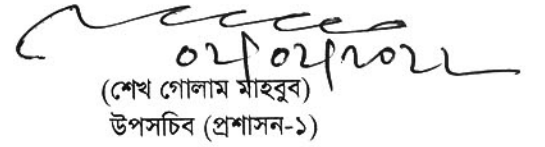 ০২/০২/২০২২
(শেখ গোলাম মাহবুব)
উপসচিব (প্রশাসন-১)